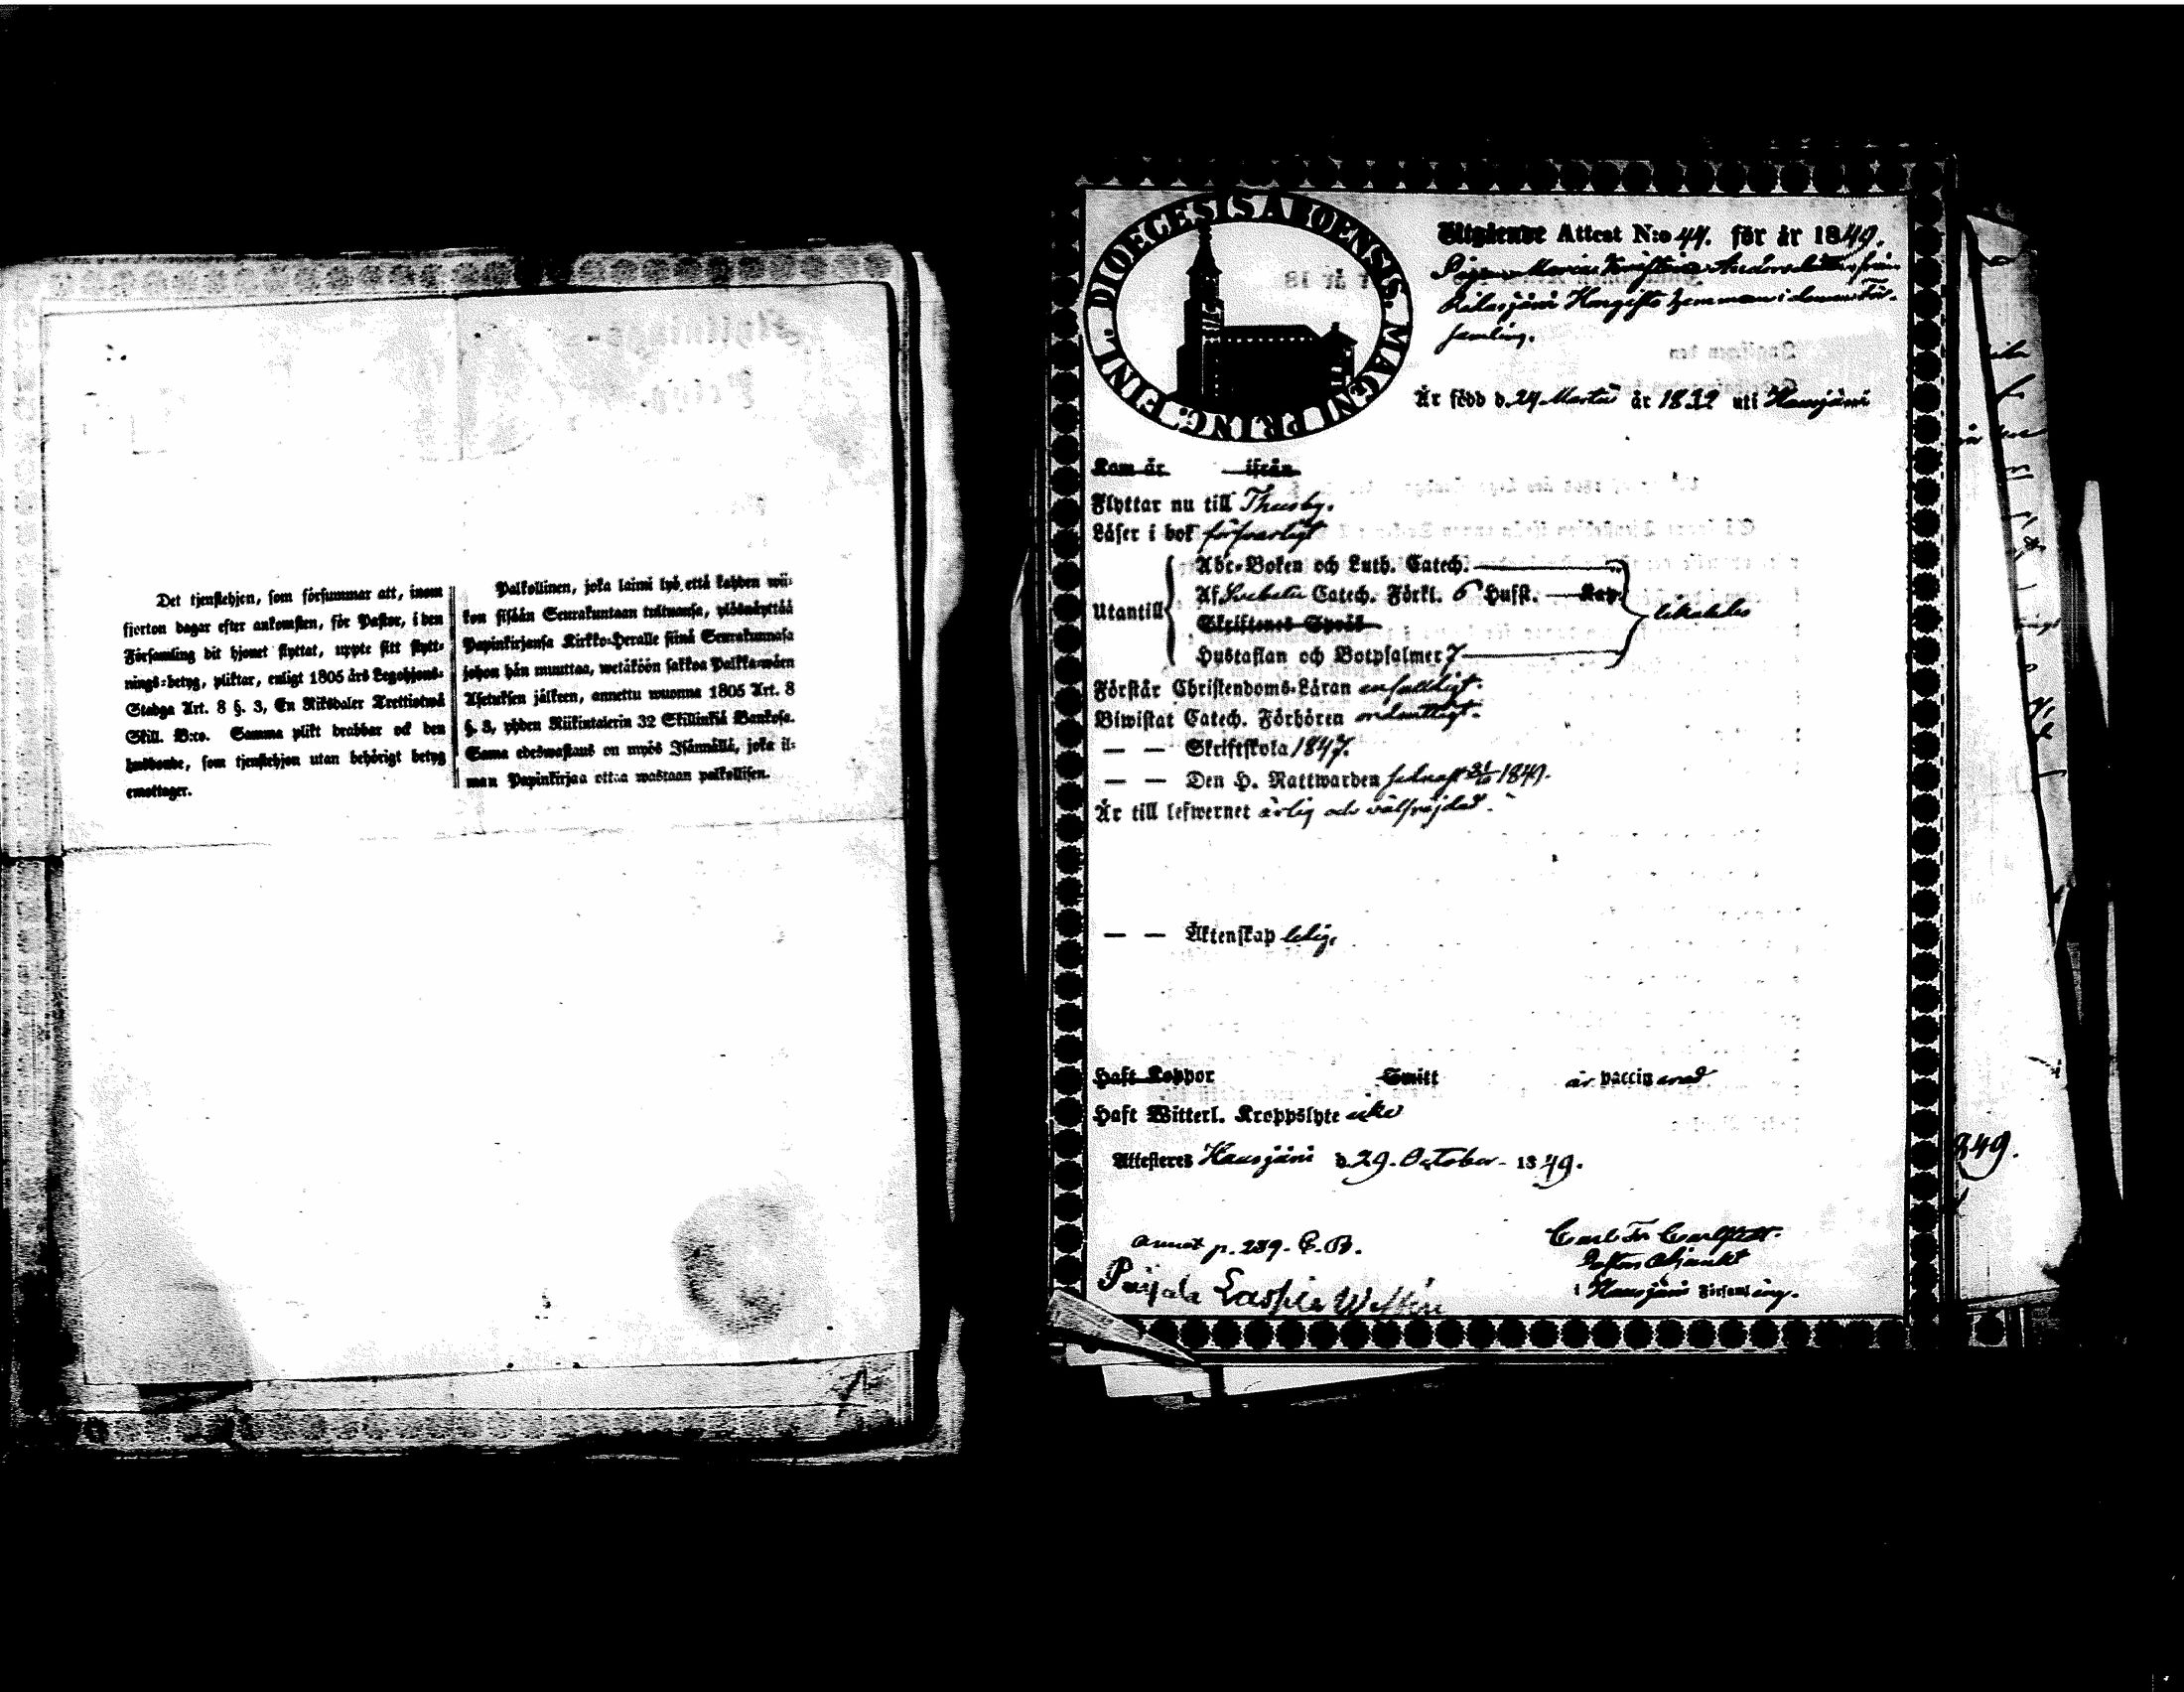 Det tjenstehjon, som försummar att, inom
fjorton dagar efter ankomsten, för Pastor, i den
Församling dit hjonet flyttat, uppte sitt flytt-
nings-betyg, pliktar, enligt 1805 års Legohjons-
Stadga Art. 8 §. 3, En Riksdaler Trettiotwå
Skill. B:co. Samma plikt drabbar ock den
husbonde, som tjenstehjon utan behörigt betyg
emottager.
Palkollinen, joka laimi lyö, että kahden wii-
kon sisään Seurakuntaan tultuansa, ylösnäyttää
Papinkirjansa Kirkko-Herralle siinä Seurakunnasa
johon hän muuttaa, wetäköön sakkoa Palkka-wäen
Asetuksen jälkeen, annettu wuonna 1805 Art. 8
§. 3, yhden Riikintalerin 32 Skillinkiä Bankosa.
Sama edeswastaus on myös Isännällä, joka il-
man Papinkirjaa ottaa wastaan palkollisen.
FINL. DIOECESIS ABOENSIS. MAGNI PRINC.
Utgående Attest N:o 44. för år 1849.
Pigan Maria Kristina Andersdotter från
Hongisto hemman i denna För-
samling.
Är född d. 24 Martii år 1832 uti Hausjärvi
Kom år ifrån
Flyttar nu till Thusby.
Läser i bok försvarligt
Utantill
Abc-Boken och Luth. Catech.
Af Svebelii Catech. Förkl. 6 Hufst. Kap.
Skriftenes Språk
Hustaflan och Botpsalmer 7
likaledes
Förstår Christendoms-Läran enfaldigt.
Biwistat Catech. Förhören ordentligt.
— — Skriftskola 1847.
— — Den H. Nattwarden sednast 21/10 1849.
Är till lefwernet ärlig och välfrejdad.
— — Äktenskap ledig.
Haft Koppor Smitt är vaccinerad
Haft Witterl. Kroppslyte icke
Attesteres Hausjärvi d. 29. October 1849.
annot p. 239. C. B.
Carl Fr Carlstedt.
Pastors Adjunkt
i Hausjärvi Församling.
849.